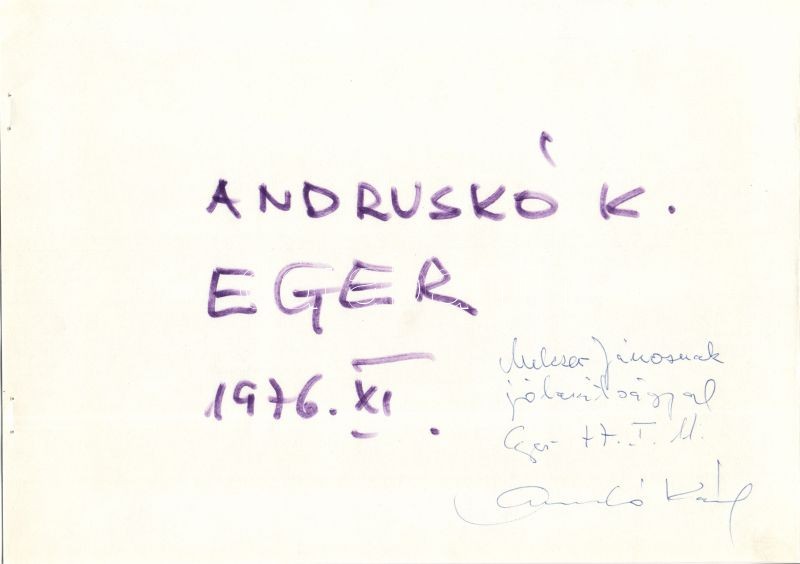 ANDRUSKÓ K.
EGER
1976. XI.
Jánosnak
jóbarátsággal
Eger 77. I. 11.
Andruskó Károly